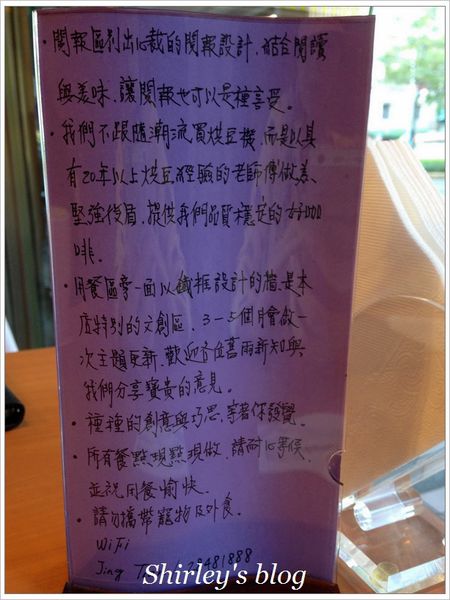 ・閱報區別出心裁的閱報設計,結合閱讀
與美味,讓閱報也可以是種享受。
・我們不跟隨潮流買烘豆機,而是以具
有20年以上烘豆經驗的老師傅做為
堅強後盾,提供我們品質穩定的好咖
啡.
・用餐區旁一面以鐵框設計的牆,是本
店特別的文創區,3-5個月會做一
次主題更新,歡迎各位舊雨新知與
我們分享寶貴的意見。
・種種的創意與巧思,等著你發覺。
・所有餐點現點現做,請耐心等候,
並祝用餐愉快.
・請勿攜帶寵物及外食。
WiFi
Jing 23481888
Shirley's blog